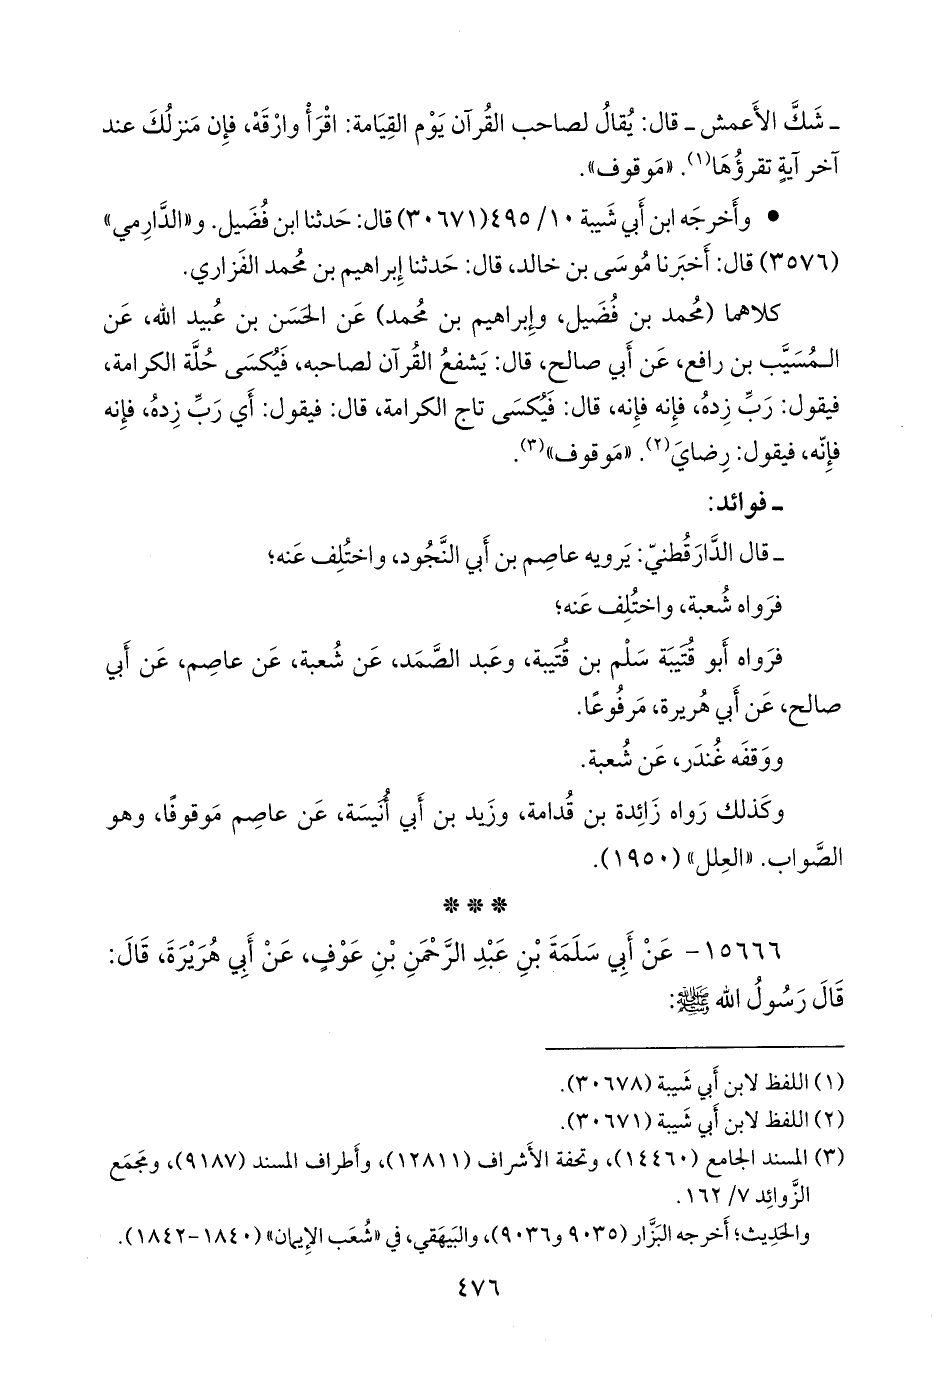 ـ شَكَّ الأَعمش ـ قال: يُقالُ لصاحب القُرآن يَوْم القِيَامة: اقْرَأْ وارْقَهْ، فإِن مَنزلُكَ عند
آخر آيةٍ تقرؤُهَا(١). «مَوقوف».
• وأَخرجَه ابن أَبي شَيبة ١٠/ ٤٩٥(٣٠٦٧١) قال: حَدثنا ابن فُضَيل. و«الدَّارِمي»
(٣٥٧٦) قال: أَخبَرنا مُوسَى بن خالد، قال: حَدثنا إِبراهيم بن مُحمد الفَزاري.
كلاهما (مُحمد بن فُضَيل، وإِبراهيم بن مُحمد) عَن الحَسَن بن عُبيد الله، عَن
المُسَيَّب بن رافع، عَن أَبي صالح، قال: يَشفعُ القُرآن لصاحبه، فَيُكسَى حُلَّة الكرامة،
فيقول: رَبِّ زِدهُ، فإِنه فإِنه، قال: فَيُكسَى تاج الكرامة، قال: فيقول: أَي رَبِّ زِدهُ، فإِنه
فإِنّه، فيقول: رِضايَ(٢). «مَوقوف»(٣).
ـ فوائد:
ـ قال الدَّارَقُطنيّ: يَرويه عاصِم بن أَبي النَّجُود، واختُلِف عَنه؛
فرَواه شُعبة، واختُلِف عَنه؛
فرَواه أَبو قُتَيبَة سَلْم بن قُتَيبة، وعَبد الصَّمَد، عَن شُعبة، عَن عاصِم، عَن أَبي
صالح، عَن أَبي هُريرة، مَرفُوعًا.
ووَقفَه غُندَر، عَن شُعبة.
وكَذلك رَواه زَائِدة بن قُدامة، وزَيد بن أَبي أُنَيسَة، عَن عاصِم مَوقوفًا، وهو
الصَّواب. «العِلل» (١٩٥٠).
* * *
١٥٦٦٦- عَنْ أَبِي سَلَمَةَ بْنِ عَبْدِ الرَّحْمَنِ بْنِ عَوْفٍ، عَنْ أَبِي هُرَيْرَةَ، قَالَ:
قَالَ رَسُولُ الله ﷺ:
(١) اللفظ لابن أَبي شَيبة (٣٠٦٧٨).
(٢) اللفظ لابن أَبي شَيبة (٣٠٦٧١).
(٣) المسند الجامع (١٤٤٦٠)، وتحفة الأَشراف (١٢٨١١)، وأَطراف المسند (٩١٨٧)، ومَجمَع
الزَّوائِد ٧/ ١٦٢.
والحَدِيث؛ أَخرجه البَزَّار (٩٠٣٥ و٩٠٣٦)، والبَيهَقي، في «شُعَب الإِيمان» (١٨٤٠-١٨٤٢).
٤٧٦